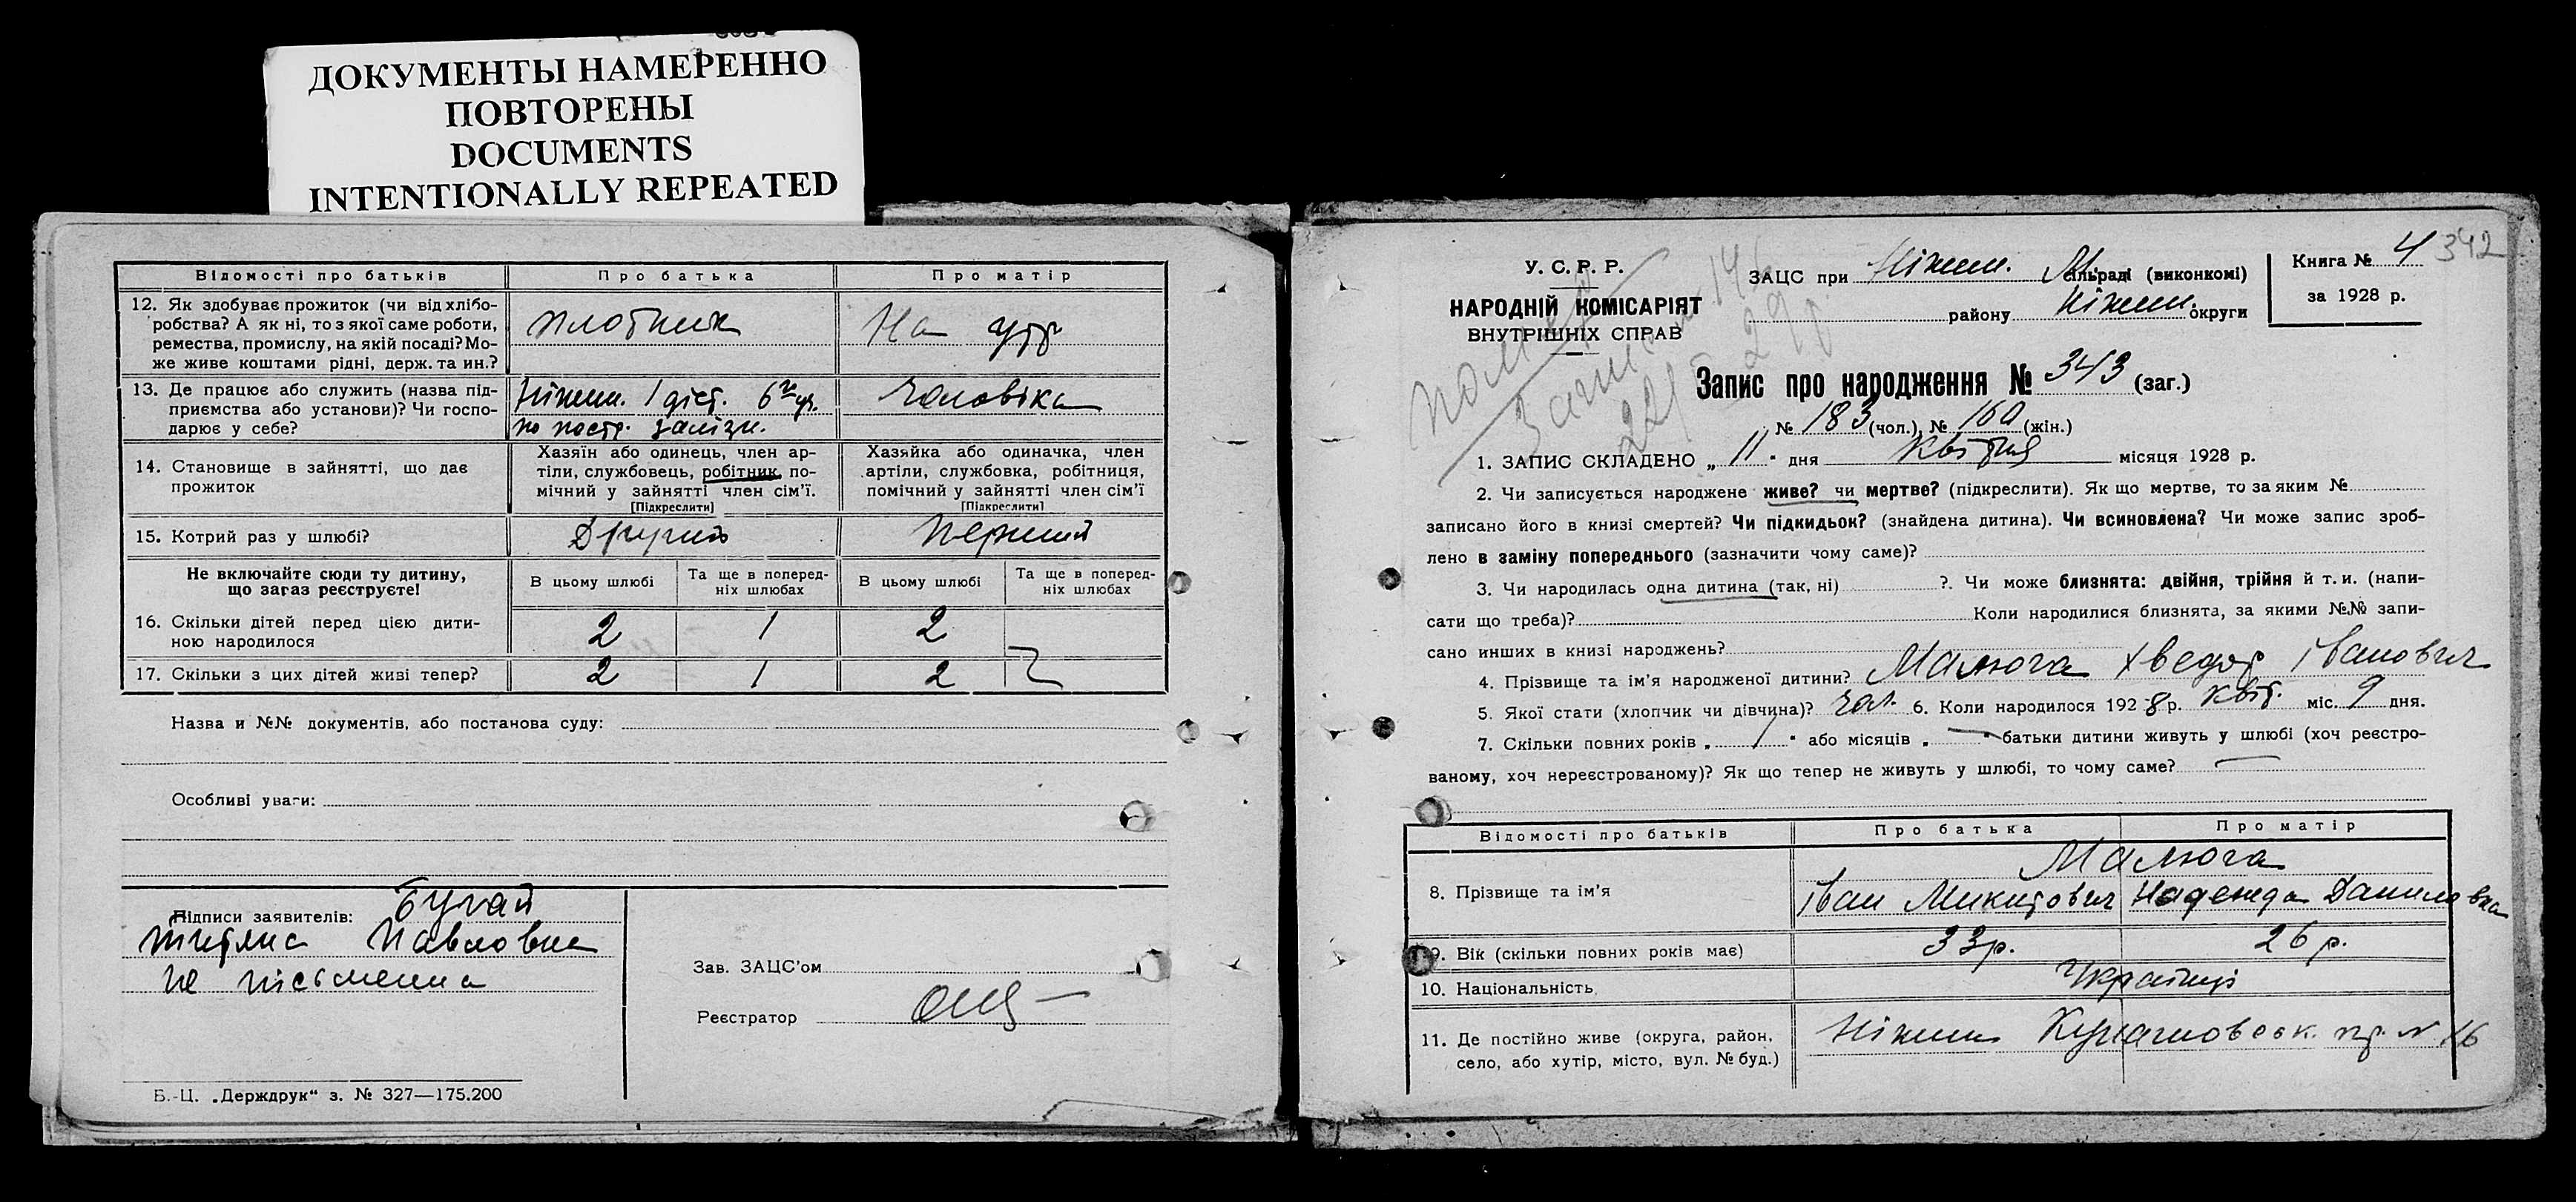 ДОКУМЕНТЫ НАМЕРЕННО
ПОВТОРЕНЫ
DOCUMENTS
INTENTIONALLY REPEATED
Відомості про батьків Про батька Про матір
12. Як здобуває прожиток (чи від хлібо-
робства? А як ні, то з якої саме роботи,
ремества, промислу, на якій посаді? Мо-
же живе коштами рідні, держ. та ин.?
плотник На утр
13. Де працює або служить (назва під-
приємства або установи)? Чи госпо-
дарює у себе?
Ніжин. 1 діст. 6
по постр. залізн.
Чоловіка
14. Становище в зайнятті, що дає
прожиток
Хазяїн або одинець, член ар-
тіли, службовець, робітник, по-
мічний у зайнятті член сім'ї.
[Підкреслити]
Хазяйка або одиначка, член
артіли, службовка, робітниця,
помічний у зайнятті член сім'ї
[Підкреслити]
15. Котрий раз у шлюбі? Другий Перший
Не включайте сюди ту дитину,
що зараз реєструєте!
В цьому шлюбі Та ще в поперед-
ніх шлюбах В цьому шлюбі Та ще в поперед-
ніх шлюбах
16. Скільки дітей перед цією дити-
ною народилося 2 1 2
17. Скільки з цих дітей живі тепер? 2 1 2
Назва и №№ документів, або постанова суду:
Особливі уваги:
Підписи заявителів: Бугай
Павловна
не письменна
Зав. ЗАЦС'ом
Реєстратор
Б.-Ц. „Держдрук" з. № 327—175.200
У. С. Р. Р.
НАРОДНІЙ КОМІСАРІЯТ
ВНУТРІШНІХ СПРАВ
ЗАЦС при Ніжин. М. сільраді (виконкомі)
району Ніжин. округи
Книга № 4
за 1928 р.
342
Запис про народження № 343 (заг.)
№ 183 (чол.), № 160 (жін.)
1. ЗАПИС СКЛАДЕНО „ 11 " дня Квітня місяця 1928 р.
2. Чи записується народжене живе? чи мертве? (підкреслити). Як що мертве, то за яким №
записано його в книзі смертей? Чи підкидьок? (знайдена дитина). Чи всиновлена? Чи може запис зроб-
лено в заміну попереднього (зазначити чому саме)?
3. Чи народилась одна дитина (так, ні) ?. Чи може близнята: двійня, трійня й т. и. (напи-
сати що треба)? Коли народилися близнята, за якими №№ запи-
сано инших в книзі народжень?
4. Прізвище та ім'я народженої дитини? Малюга Хведор Іванович
5. Якої стати (хлопчик чи дівчина)? чол. 6. Коли народилося 1928 р. квіт. міс. 9 дня.
7. Скільки повних років „ 7 " або місяців „ — " батьки дитини живуть у шлюбі (хоч реєстро-
ваному, хоч нереєстрованому)? Як що тепер не живуть у шлюбі, то чому саме? —
Відомості про батьків Про батька Про матір
8. Прізвище та ім'я
Малюга
Іван Микитович Надежда Даниловна
9. Вік (скільки повних років має) 33 р. 26 р.
10. Національність Українці
11. Де постійно живе (округа, район,
село, або хутір, місто, вул. № буд.)
Ніжин № 16